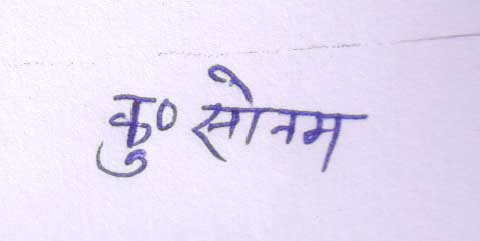 कु० सोनम